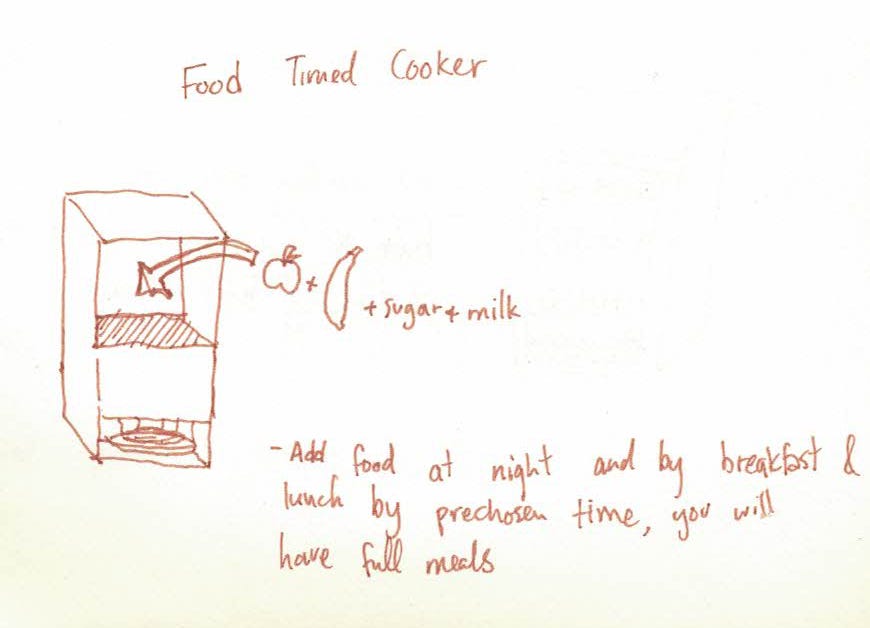 Food Timed Cooker
+ + sugar + milk
- Add food at night and by breakfast &
lunch by prechosen time, you will
have full meals